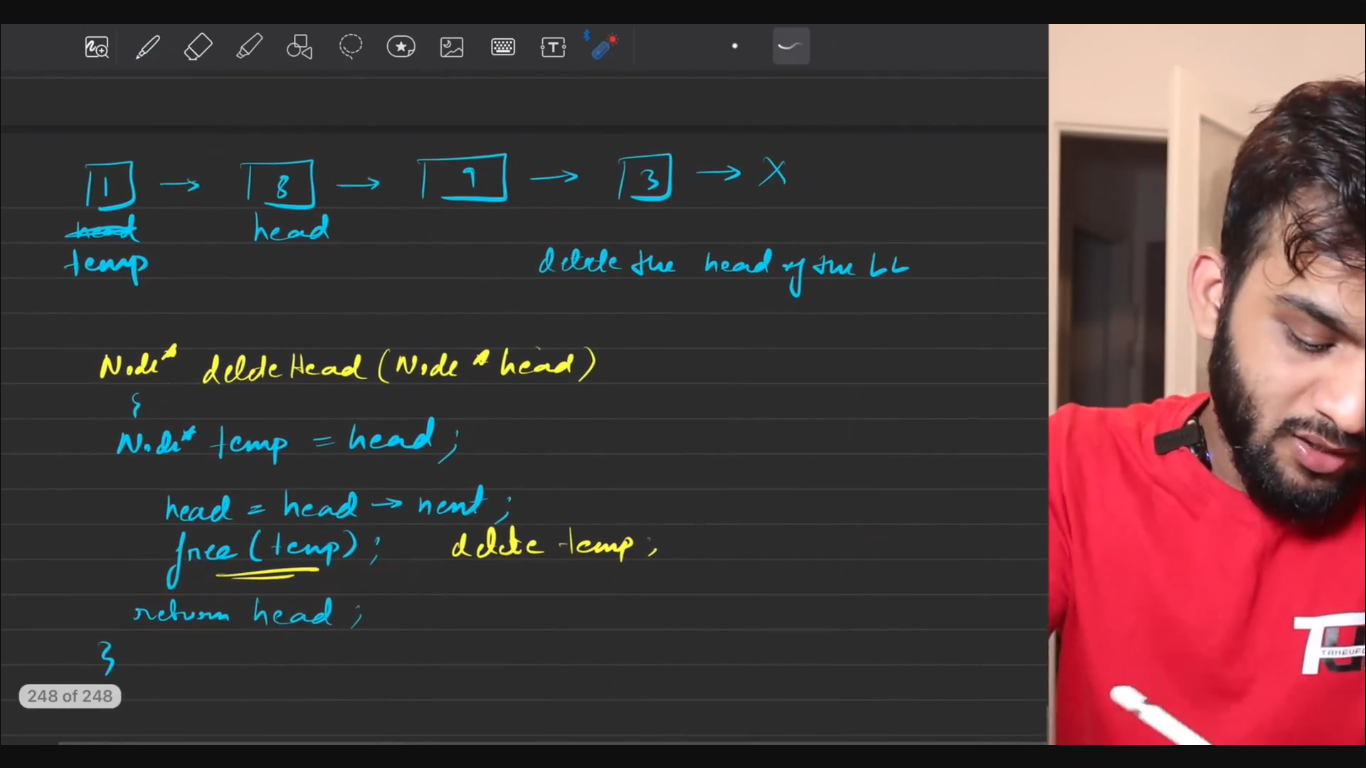 1 → 8 → 9 → 3 → X
head head
temp
delete the head of the LL
Node* deleteHead(Node* head)
{
Node* temp = head;
head = head → next;
free(temp); delete temp;
return head;
}
248 of 248
TUF
TAKEUFO